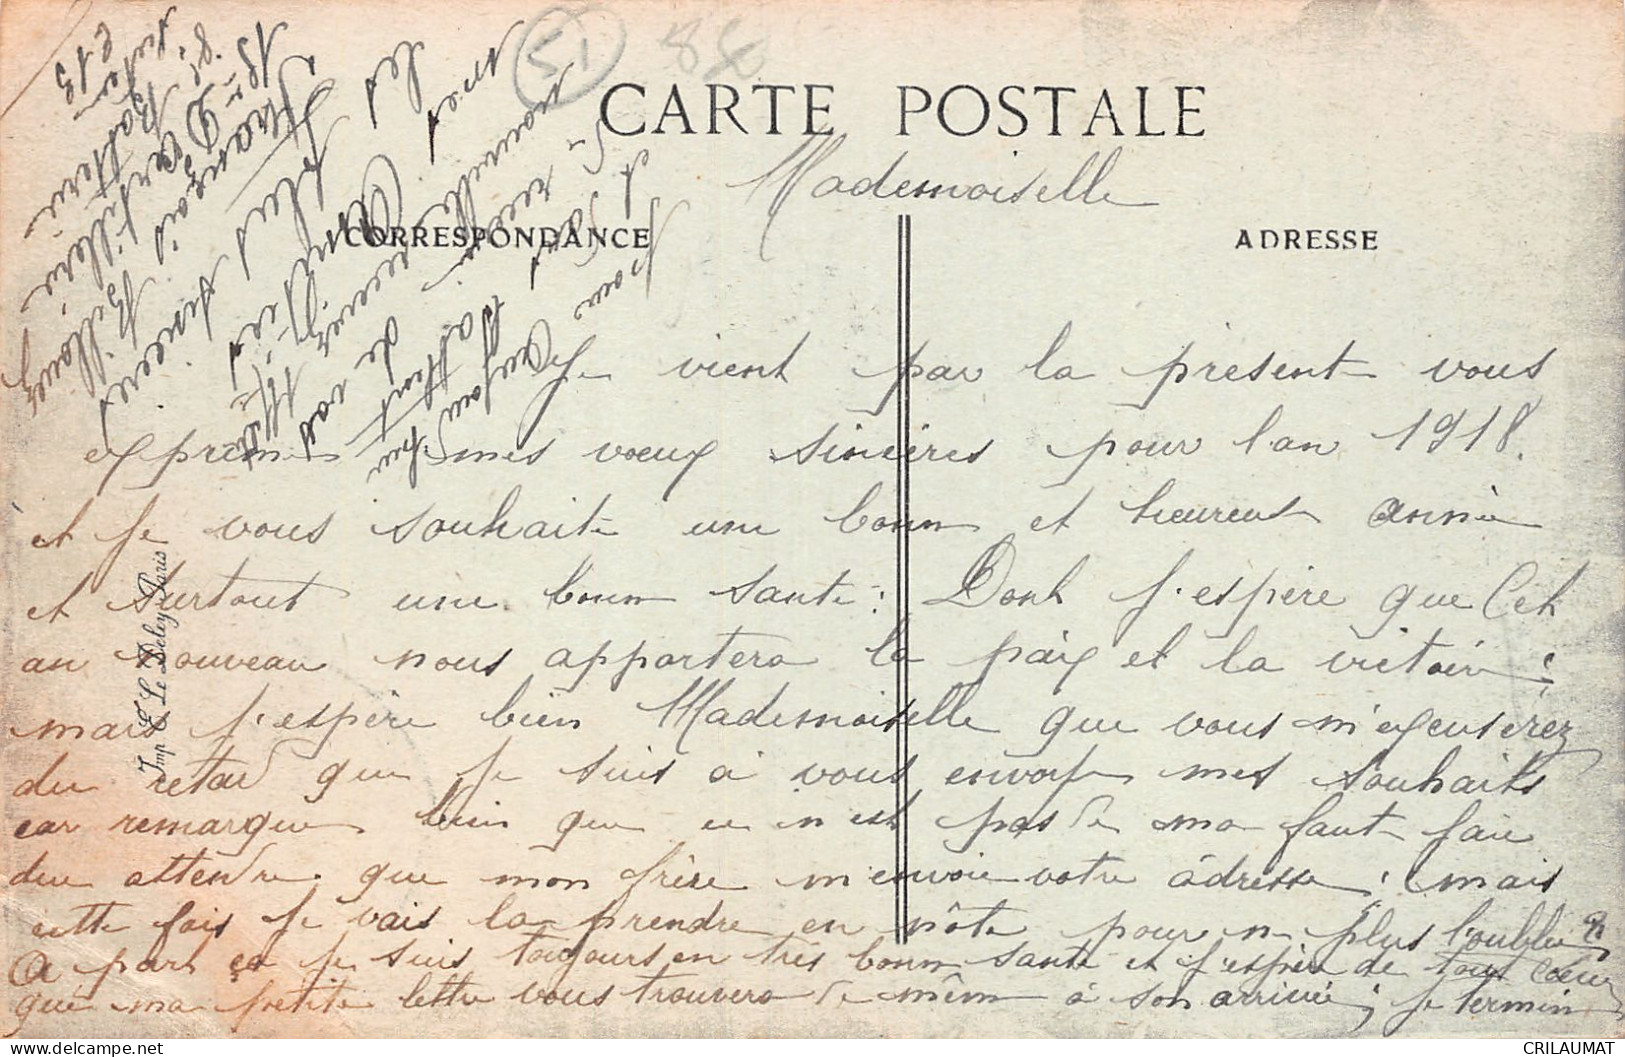 51
CARTE POSTALE
CORRESPONDANCE
ADRESSE
Mademoiselle
Je vient par la présent vous
exprime mes vœux sincères pour l'an 1918.
et je vous souhaite une bonn et heureus année
et surtout une bonn sante: Dont j'espère que Cet
an nouveau nous apportera la paix et la victoire;
mais j'espère bien Mademoiselle que vous m'excuserez
du retard que je suis à vous envoyer mes souhaits
car remarque bien que ce n'est pas de ma faut faire
du attendre que mon frère m'envoie votre adresse; mais
cette fois je vais la prendre en nôte pour n plus l'oublie
A part ça je suis toujours en très bonn sante et j'espère de tout cœur
que ma petite lettre vous trouvera de même à son arrivée; je termin
Pour Aujourdhui
et vous
réception de vos
nouvelle recevez
mes Amitiés
les plus sincères
François Billouez
13e D'artillerie
Batterie
Imp. E. Le Deley Paris
CRILAUMAT